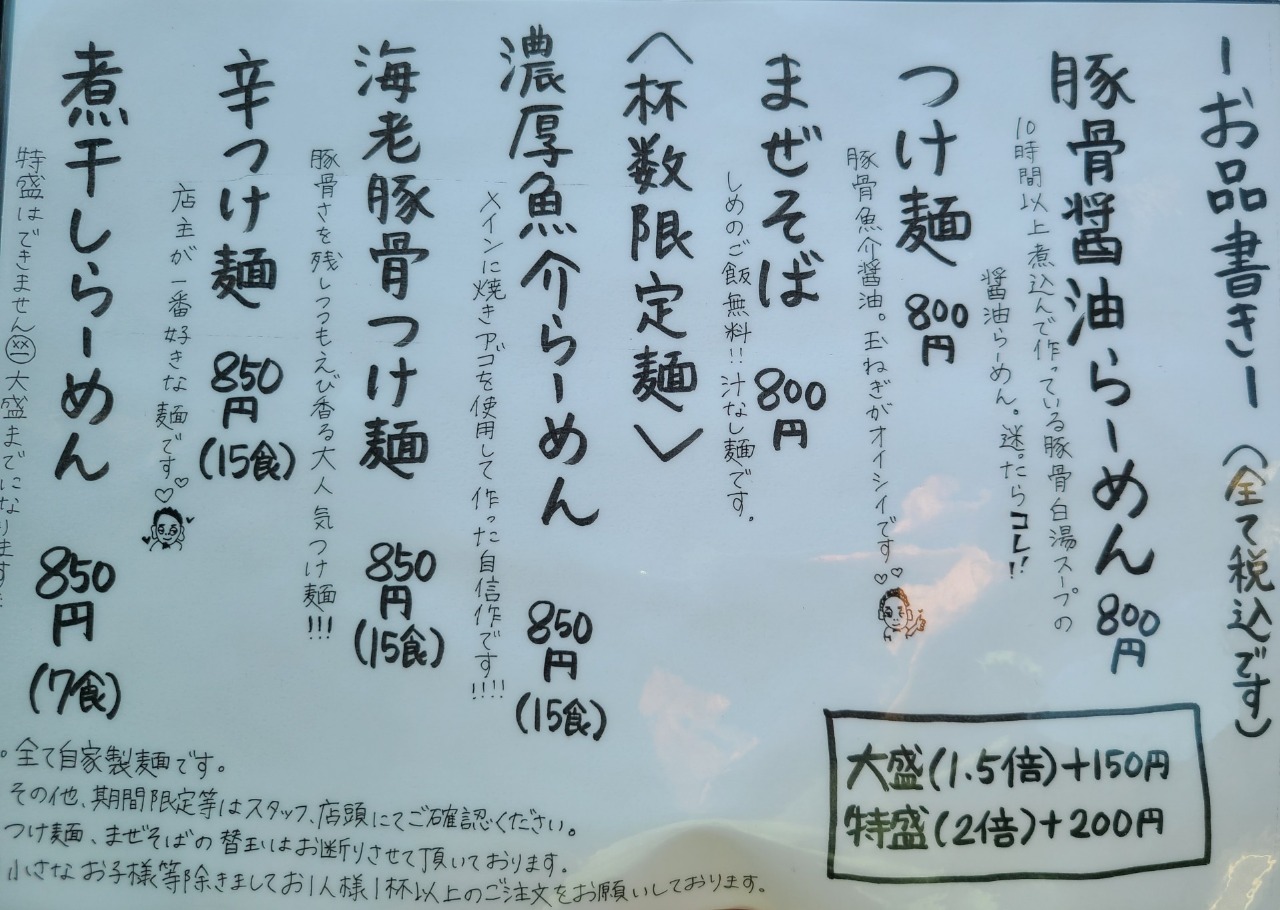 ーお品書きー（全て税込です）
豚骨醤油らーめん 800円
10時間以上煮込んで作っている豚骨白湯スープの
醤油らーめん。迷ったらコレ!!
つけ麺 800円
豚骨魚介醤油。玉ねぎがオイシイです♡♡
まぜそば 800円
しめのご飯無料!!汁なし麺です。
〈杯数限定麺〉
濃厚魚介らーめん 850円(15食)
メインに焼きアゴを使用して作った自信作です!!!!
海老豚骨つけ麺 850円(15食)
豚骨さを残しつつもえび香る大人気つけ麺!!!
辛つけ麺 850円(15食)
店主が一番好きな麺です♡♡
煮干しらーめん 850円(7食)
特盛はできません 大盛までになります
大盛(1.5倍)+150円
特盛(2倍)+200円
。全て自家製麺です。
その他、期間限定等はスタッフ、店頭にてご確認ください。
つけ麺、まぜそばの替玉はお断りさせて頂いております。
小さなお子様等除きましてお1人様1杯以上のご注文をお願いしております。